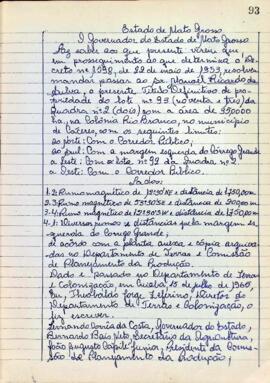 93
Estado de Mato Grosso
O Governador do Estado de Mato Grosso
Faz saber aos que presente virem que
em prosseguimento ao que determina o De-
creto nº 1598, de 22 de maio de 1953, resolveu
mandar passar ao Sr. Manoel Ricardo da
Silva, o presente Titulo Definitivo de pro-
priedade do lote nº 93 (noventa e três) da
Quadra nº 2 (dois) com a área de
ha, na Colonia Rio Branco, no município
de Cáceres, com os seguintes limites:
ao norte: Com o Corredor Público;
ao sul: Com a margem esquerda do Córrego Grande
a Leste: Com o lote nº 92 da Quadra nº 2
a Oeste: Com o Corredor Público.
Lados:
1.2: Rumo magnético de e distância de
2.3: Rumo magnético de e distância de
3.4: Rumo magnético de e distância de
4.1: Diversos rumos e distâncias pela margem es-
querda do Corrego Grande;
de acordo com a planta anexa e cópia arquiva-
das no Departamento de Terras e Comissão
de Planejamento da Produção.
Dado e passado no Departamento de Terras
e Colonização, em Cuiabá, 15 de julho de 1960,
Eu, Theobaldo Jorge Zeferino, Diretor do
Departamento de Terras e Colonização, o
fiz escrever.
Fernando Corrêa da Costa, Governador do Estado,
Bernardo Bais Neto, Secretário da Agricultura,
João Augusto Capilé Junior, Presidente da Comis-
são de Planejamento da Produção,